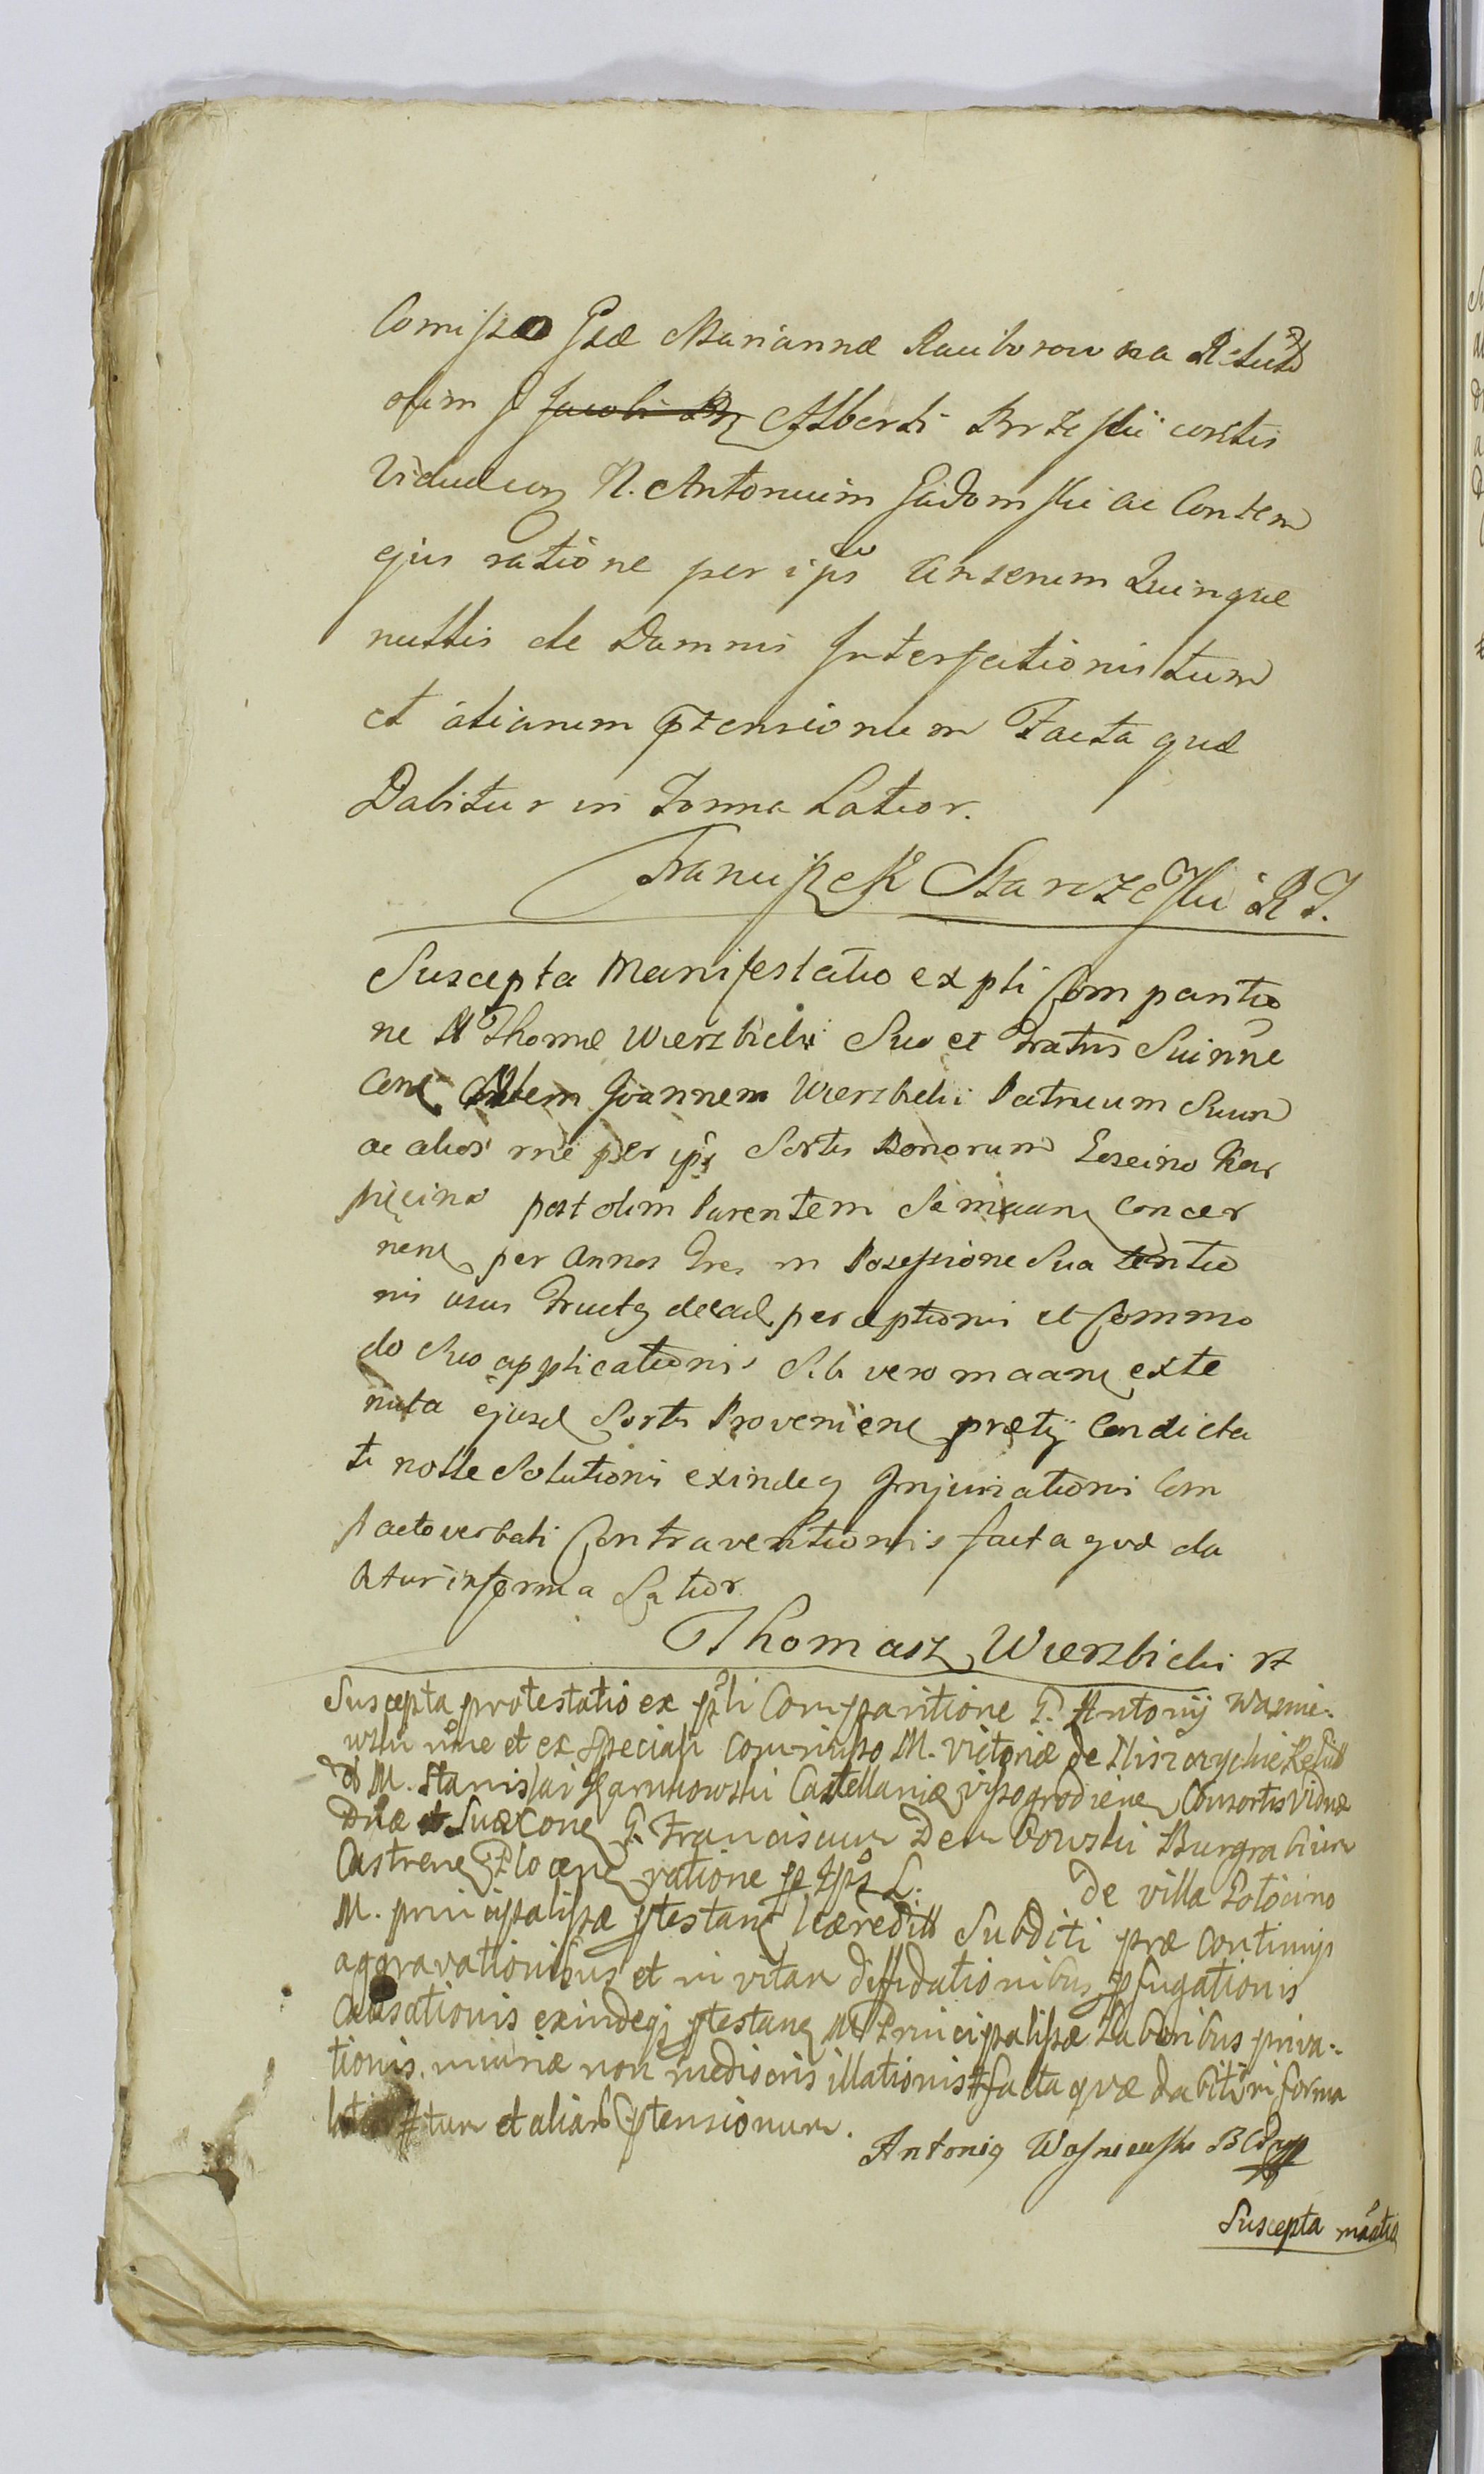 Comisso Gsæ Mariannæ Raciborowska Relictæ
olim G Jacobi Br Alberti Brzeski contis
Viduæ con N. Antonium Gadomski ac Contem
ejus ratione per ips Anserum Quinque
nullis de Damnis Interfectionis tum
et aliarum ptensionum Facta quæ
Dabitur in Forma Latior.
Franciszek Starczeski R J.
Suscepta Manifestatio ex pli Comparitio
ne M Thomæ Wierzbicki Suo et Fratris Sui nne
Cone Joannem Wierzbicki Patruum Suum
ac alios rne per ips Sortis Bonorum
post olim Parentem Se maan Concer
nen per Annos Tres in Posessione Sua tentio
nis usus Fructq decad perceptionis et Commo
do Suo applicationis Sibi vero maan exte
nuta ejusd Sortis Provenien prætij Condicta
ti nolle Solutionis exindeq Injuriationis Com
pacto verbali Contraventionis facta quæ da
bitur in forma Latior
Thomasz Wierzbicki
Suscepta protestatio ex pli Comparitione G. Antonij Wasnie-
wski nne et ex speciali commisso M. Victoriæ de Relictt
M. Stanislai Karnkowski Castellaniæ Vissogrodien Consortis Viduæ
Dnæ Suæ Con G. Franciscum Dembowski Burgrabium
Castren Plocen ratione p Ips L. De villa Lotocino
M. principalissæ ptestan hæreditt Subditi præ continuis
aggravationibus et in vitam diffidationibus pfugationis
Causationis exindeq ptestan M Principalissæ Laboribus priva-
tionis, injuriæ non mediocris illationis facta quæ dabitur in forma
latiori tum et aliar ptensionum.
Antoniq Wasniewski
Suscepta maatio